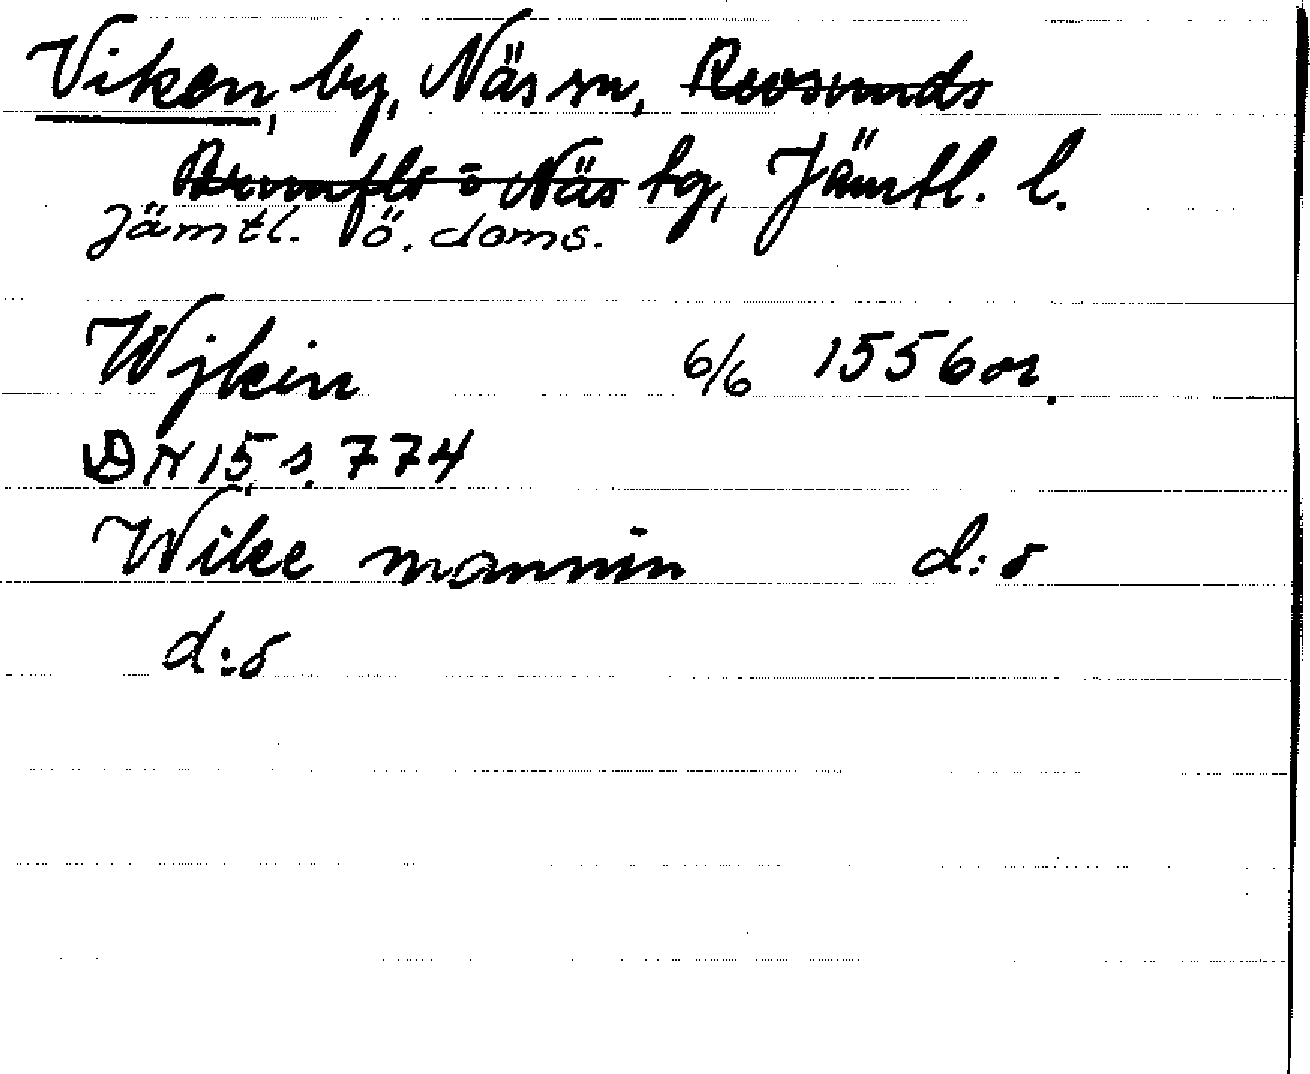 Viken, by, Näs sn, Revsunds
Brunflo o Näs tg, Jämtl. l.
Jämtl. ö. doms.
Wjkin 6/6 1556 or.
DN 15, s. 774
Wike mannin d:o
d:o